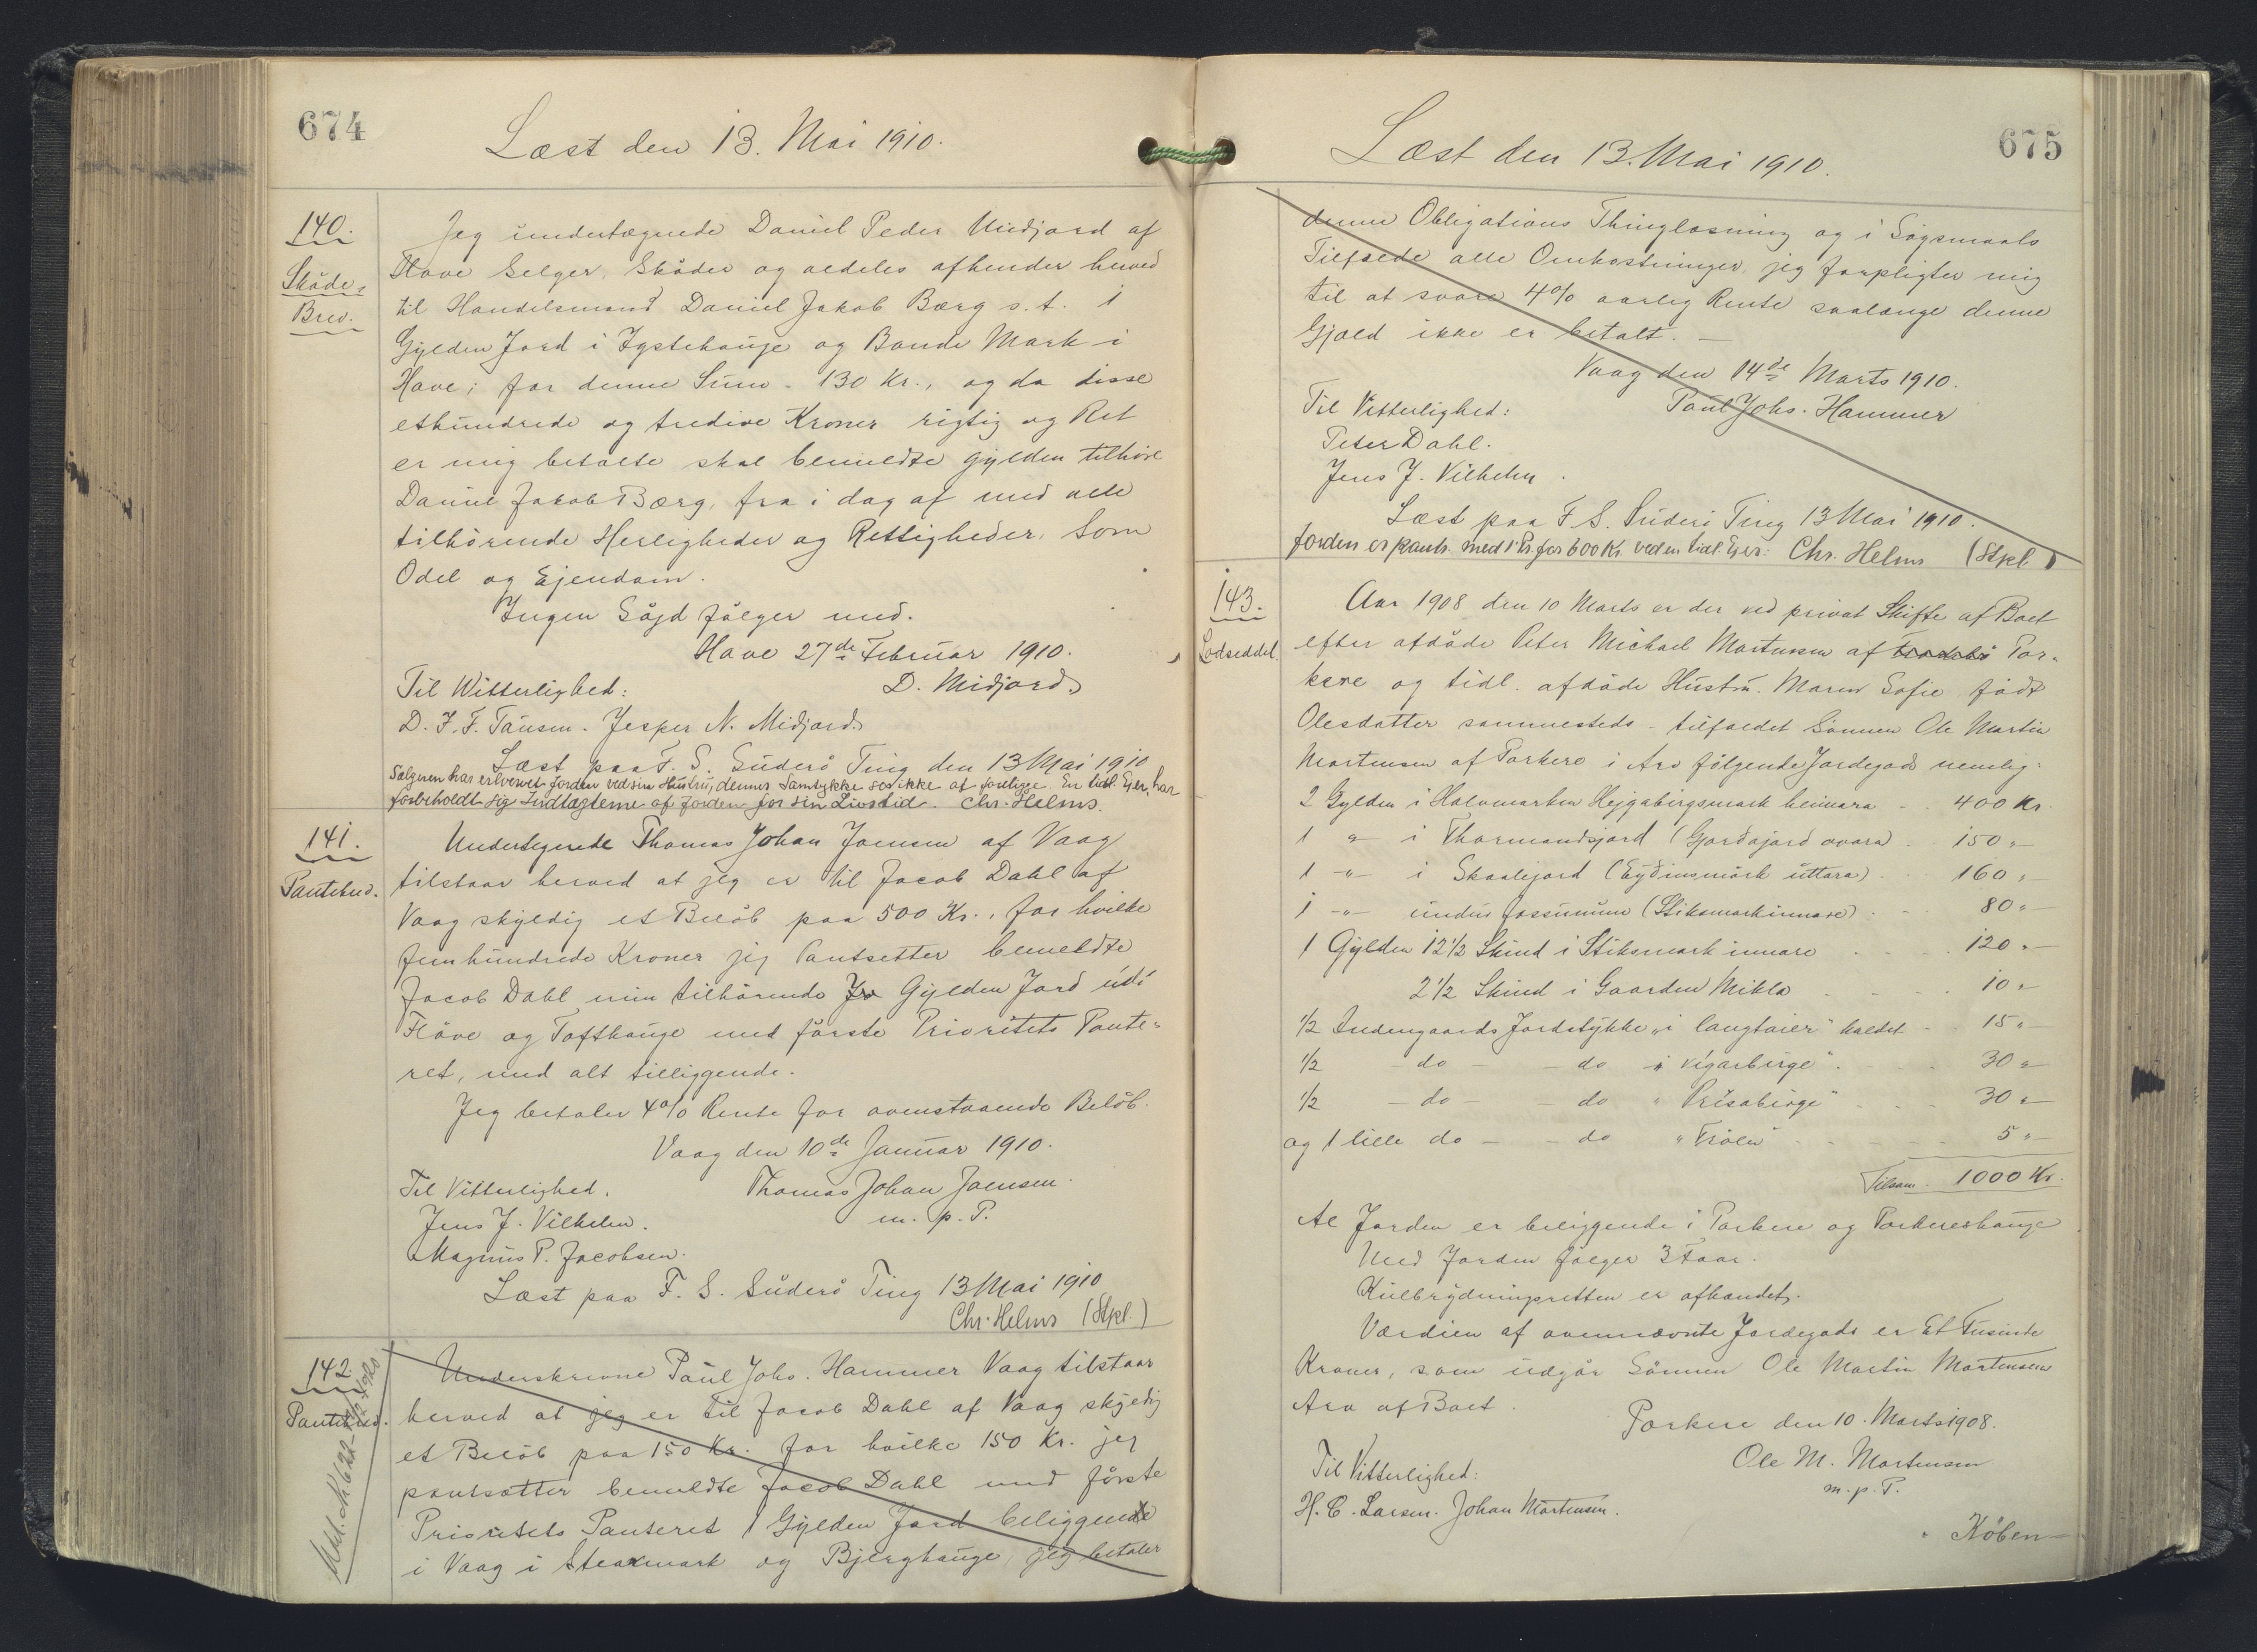 674
Læst den 13. Mai 1910.
140.
Skøde-
Brev.
Jeg undertegnede Daniel Peder Midjord af
Hove Selger, Skøder og aldeles afhender herved
til Handelsmand Daniel Jakob Bærg s. t. 1
Gylden Jord i Ygstehauge og Bande Mark i
Hove; for denne Sum - 130 Kr., og da disse
ethundrede og tredive Kroner rigtig og Ret
er mig betalte skal bemeldte gylden tilhöre
Daniel Jakob Bærg, fra i dag af med alle
tilhörende Herligheder og Rettigheder, Som
Odel og Ejendom.
Ingen Söjd fölger med.
Hove 27de Februar 1910.
Til Witterlighed: D. Midjord.
D. J. F. Tausen. Jesper N. Midjord.
Læst paa F. S. Suderö Ting den 13 Mai 1910
Sælgeren har erhvervet Jorden ved sin Hustru, dennes Samtykke ses ikke at foreligge. En tidl. Ejer, har
forbeholdt sig Indtægterne af Jorden for sin Livstid. Chr. Helms.
141.
Pantebrev.
Undertegnede Thomas Johan Joensen af Vaag
tilstaar herved at jeg er til Jacob Dahl af
Vaag skyldig et Belöb paa 500 Kr., for hvilke
femhundrede Kroner jeg Pantsetter bemeldte
Jacob Dahl min tilhörende Gylden Jord udi
Flöve og Tofthauge med förste Prioritets Pante-
ret, med alt tilliggende.
Jeg betaler 4% Rente for ovenstaaende Belöb.
Vaag den 10de Januar 1910.
Til Vitterlighed. Thomas Johan Joensen.
Jens J. Vilhelm. m. p. P.
Magnus P. Jacobsen.
Læst paa F. S. Suderö Ting 13 Mai 1910
Chr. Helms (Stpl.)
142.
Pantebrev.
Underskrevne Paul Johs. Hammer Vaag tilstaar
herved at jeg er til Jacob Dahl af Vaag skyldig
et Belöb paa 150 Kr. for hvilke 150 Kr. jeg
pantsætter bemeldte Jacob Dahl med förste
Prioritets Panteret 1 Gylden Jord beliggende
i Vaag i Steaxmark og Bjerghauge, jeg betaler
675
Læst den 13. Mai 1910.
denne Obligations Thinglæsning og i Sögsmaals
Tilfælde alle Omkostninger, jeg forpligter mig
til at svare 4% aarlig Rente saalænge denne
Gjæld ikke er betalt. —
Vaag den 14de Marts 1910.
Til Vitterlighed: Paul Johs. Hammer
Peter Dahl.
Jens J. Vilhelm.
Læst paa F. S. Suderö Ting 13 Mai 1910.
Jorden er pants. med 1 Pr. for 600 Kr. ved en tidl. Ejer. Chr. Helms (Stpl.)
143.
Lodseddel.
Aar 1908 den 10 Marts er der ved privat Skifte af Boet
efter afdöde Peter Michael Mortensen af Por-
kere og tidl. afdöde Hustru Maren Sofie födt
Olesdatter sammesteds - tilfaldet Sönnen Ole Martin
Mortensen af Porkere i Arv fölgende Jordegods nemlig:
2 Gylden i Halvmarken Hejgabirgsmark heimara - . 400 Kr.
1 -"- i Thormandsjord (Gordajord ovara) . . 150 "
1 -"- i Skaalejord (Eydinsmörk uttara) . . 160 "
1 -"- undir fossunum (Stiksmark innare) . . 80 "
1 Gylden 12 1/2 Skind i Stiksmark innare . . . 120 "
2 1/2 Skind i Gaarden Mikla . . . 10 "
1/2 Indengaards Jordstykke "i langtaier" kaldet - 15 "
1/2 - do - - do "i vigarbirge" . . . 30 "
1/2 - do - - do "Prisabirge" . . . 30 "
og 1 lille do - - do "Tröen" . . . 5 "
Tilsam. 1000 Kr.
Al Jorden er beliggende i Porkere og Porkereshauge
Med Jorden fölger 3 Faar.
Kulbrydningsretten er afhandet.
Værdien af ovennævnte Jordegods er Et tusinde
Kroner, som udgör Sönnen Ole Martin Mortensen
Arv af Boet.
Porkere den 10. Marts 1908.
Til Vitterlighed: Ole M. Mortensen
m. p. P.
H. C. Larsen. Johan Mortensen.
Köben-